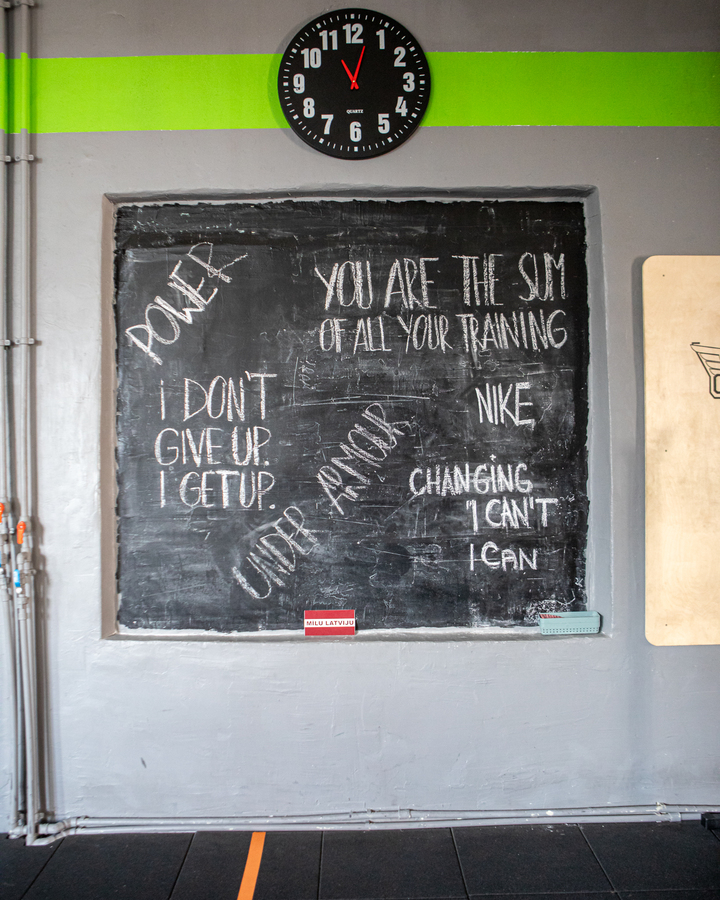 11 12 1
10 2
9 3
8 4
7 6 5
QUARTZ
POWER
YOU ARE THE SUM
OF ALL YOUR TRAINING
I DON'T
GIVE UP.
I GET UP.
NIKE
UNDER ARMOUR
CHANGING
"I CAN'T
I CAN
MILU LATVIJU